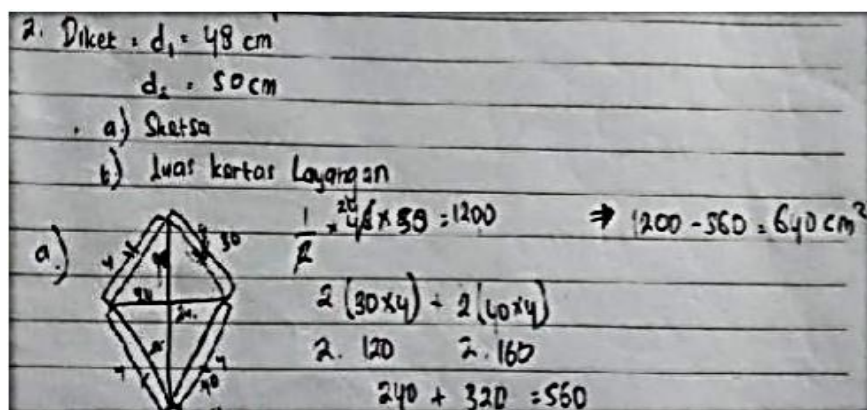 2. Diket : d₁ = 48 cm
d₂ = 50 cm
a.) Sketsa
b.) Luas kertas Layangan
1/2 × 48 × 50 = 1200 ⇒ 1200 - 560 = 640 cm²
a.)
2 (30×4) + 2 (40×4)
2. 120 2. 160
240 + 320 = 560